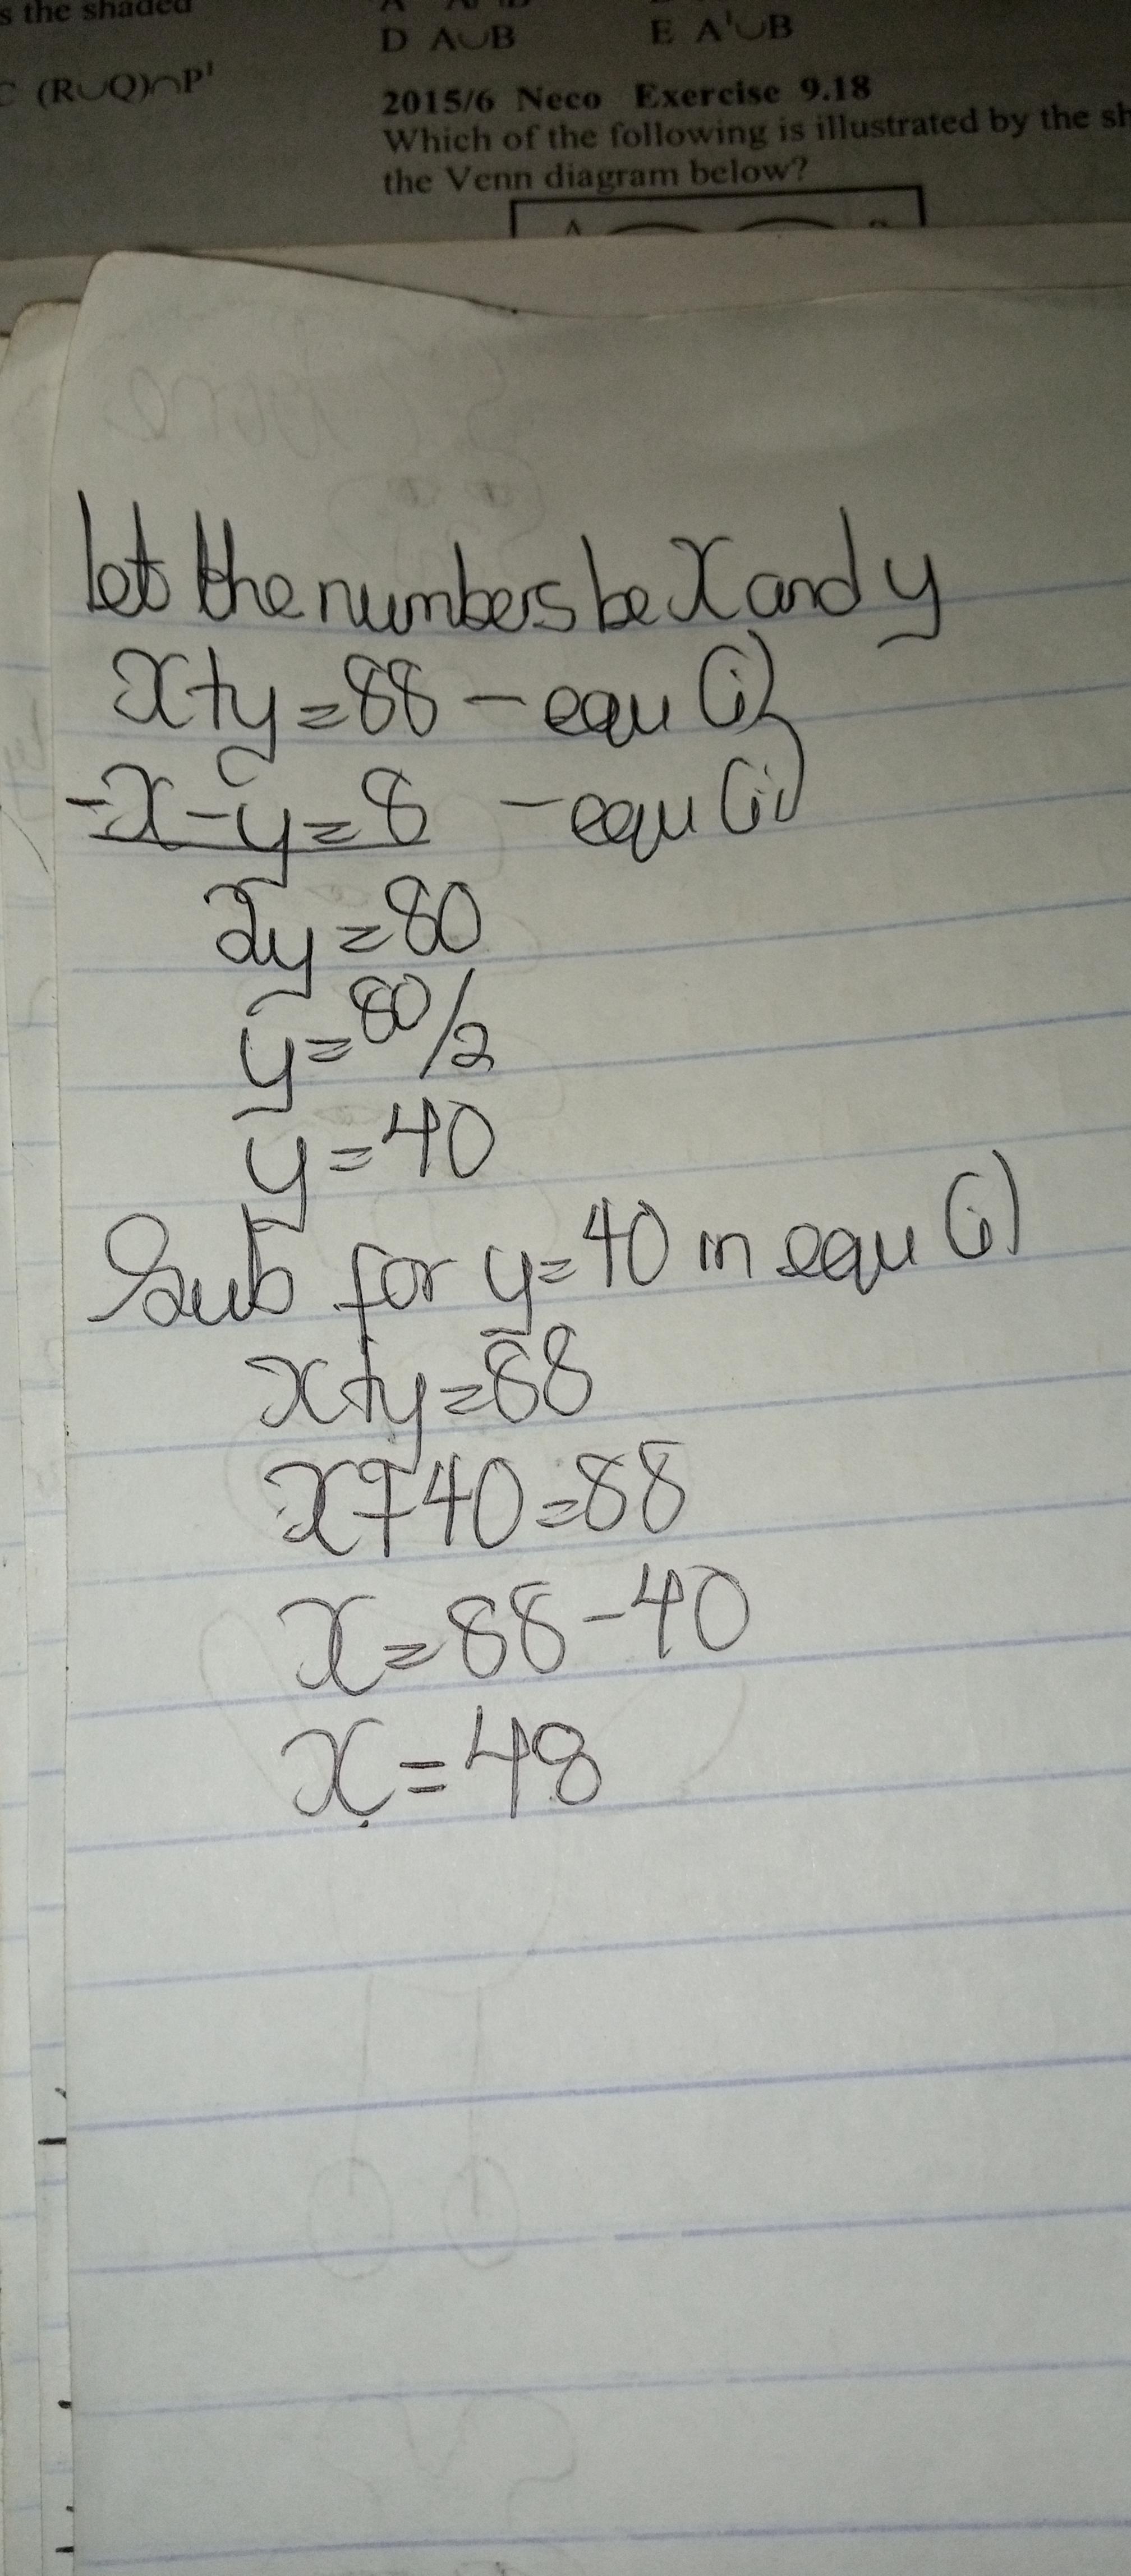 s the shaded
D A∪B E A'∪B
C (R∪Q)∩P'
2015/6 Neco Exercise 9.18
Which of the following is illustrated by the sh
the Venn diagram below?
A
let the numbers be x and y
x+y=88 - equ (i)
-x-y=8 - equ (ii)
2y=80
y=80/2
y=40
Sub for y=40 in equ (i)
x+y=88
x+40=88
x=88-40
x=48